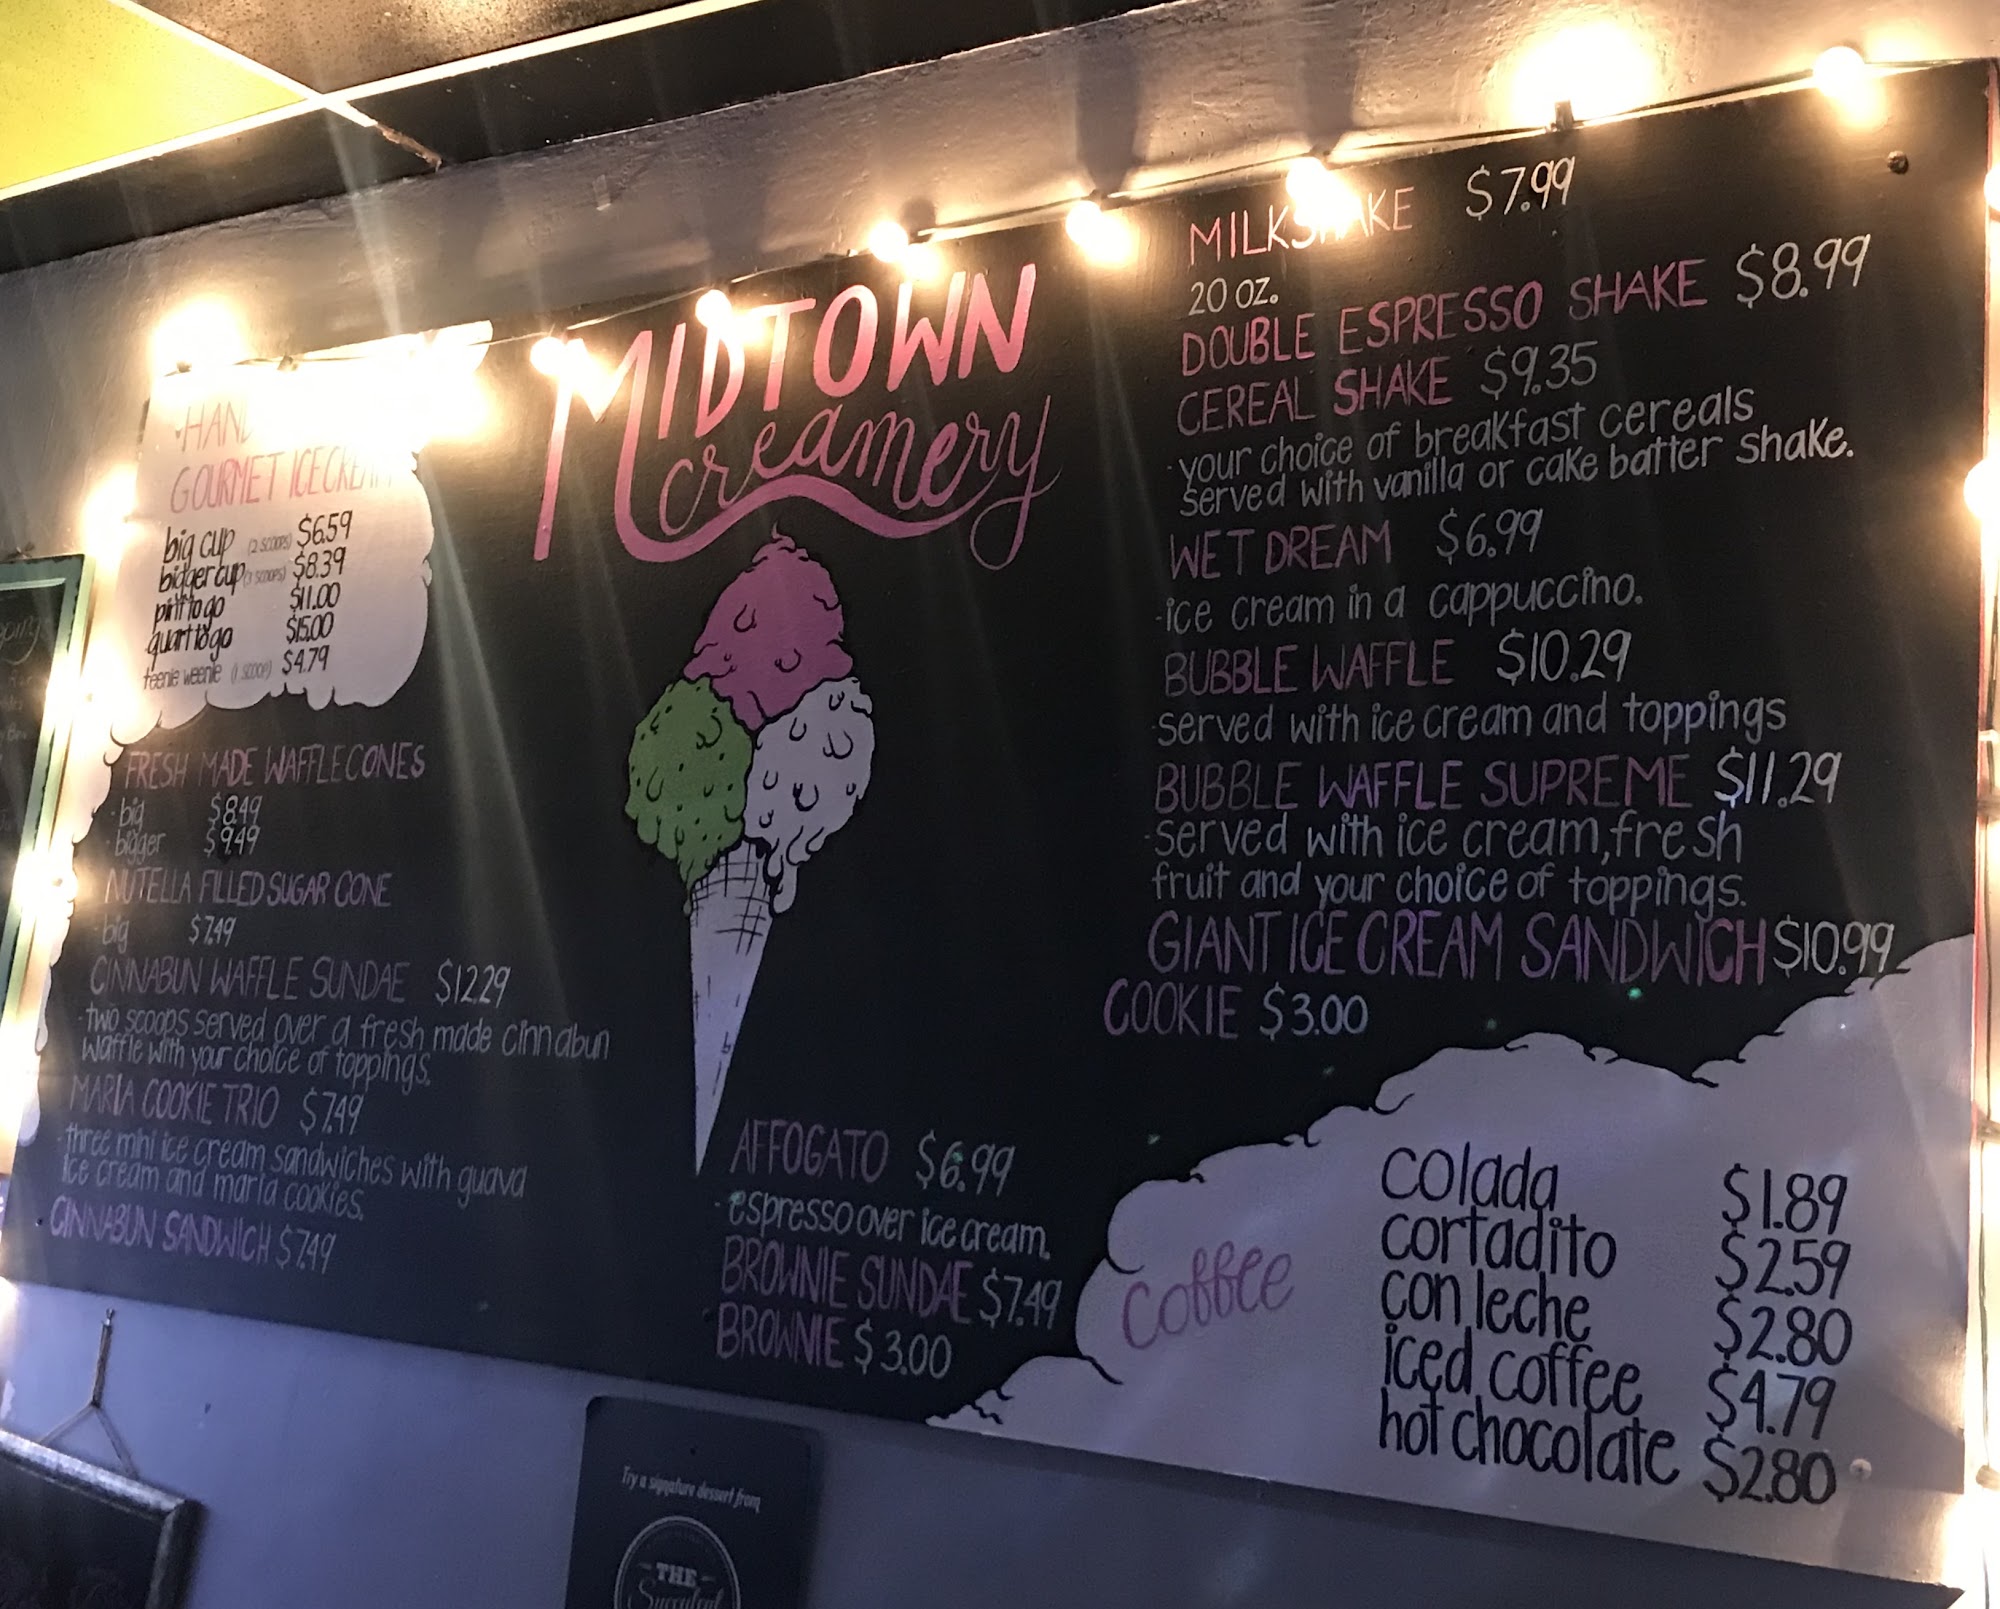 GOURMET ICE CREAM
big cup (2 SCOOPS) $6.59
bigger cup (3 SCOOPS) $8.39
pint to go $11.00
quart to go $15.00
teenie weenie (1 SCOOP) $4.79
FRESH MADE WAFFLE CONES
- big $8.49
- bigger $9.49
NUTELLA FILLED SUGAR CONE
- big $7.49
CINNABUN WAFFLE SUNDAE $12.29
- two scoops served over a fresh made cinnabun
waffle with your choice of toppings.
MARIA COOKIE TRIO $7.49
- three mini ice cream sandwiches with guava
ice cream and maria cookies.
CINNABUN SANDWICH $7.49
MIDTOWN
creamery
AFFOGATO $6.99
- espresso over ice cream.
BROWNIE SUNDAE $7.49
BROWNIE $3.00
MILKSHAKE $7.99
20 OZ.
DOUBLE ESPRESSO SHAKE $8.99
CEREAL SHAKE $9.35
- your choice of breakfast cereals
served with vanilla or cake batter shake.
WET DREAM $6.99
- ice cream in a cappuccino.
BUBBLE WAFFLE $10.29
- served with ice cream and toppings
BUBBLE WAFFLE SUPREME $11.29
- served with ice cream, fresh
fruit and your choice of toppings.
GIANT ICE CREAM SANDWICH $10.99
COOKIE $3.00
coffee
colada $1.89
cortadito $2.59
con leche $2.80
iced coffee $4.79
hot chocolate $2.80
Try a signature dessert from
THE